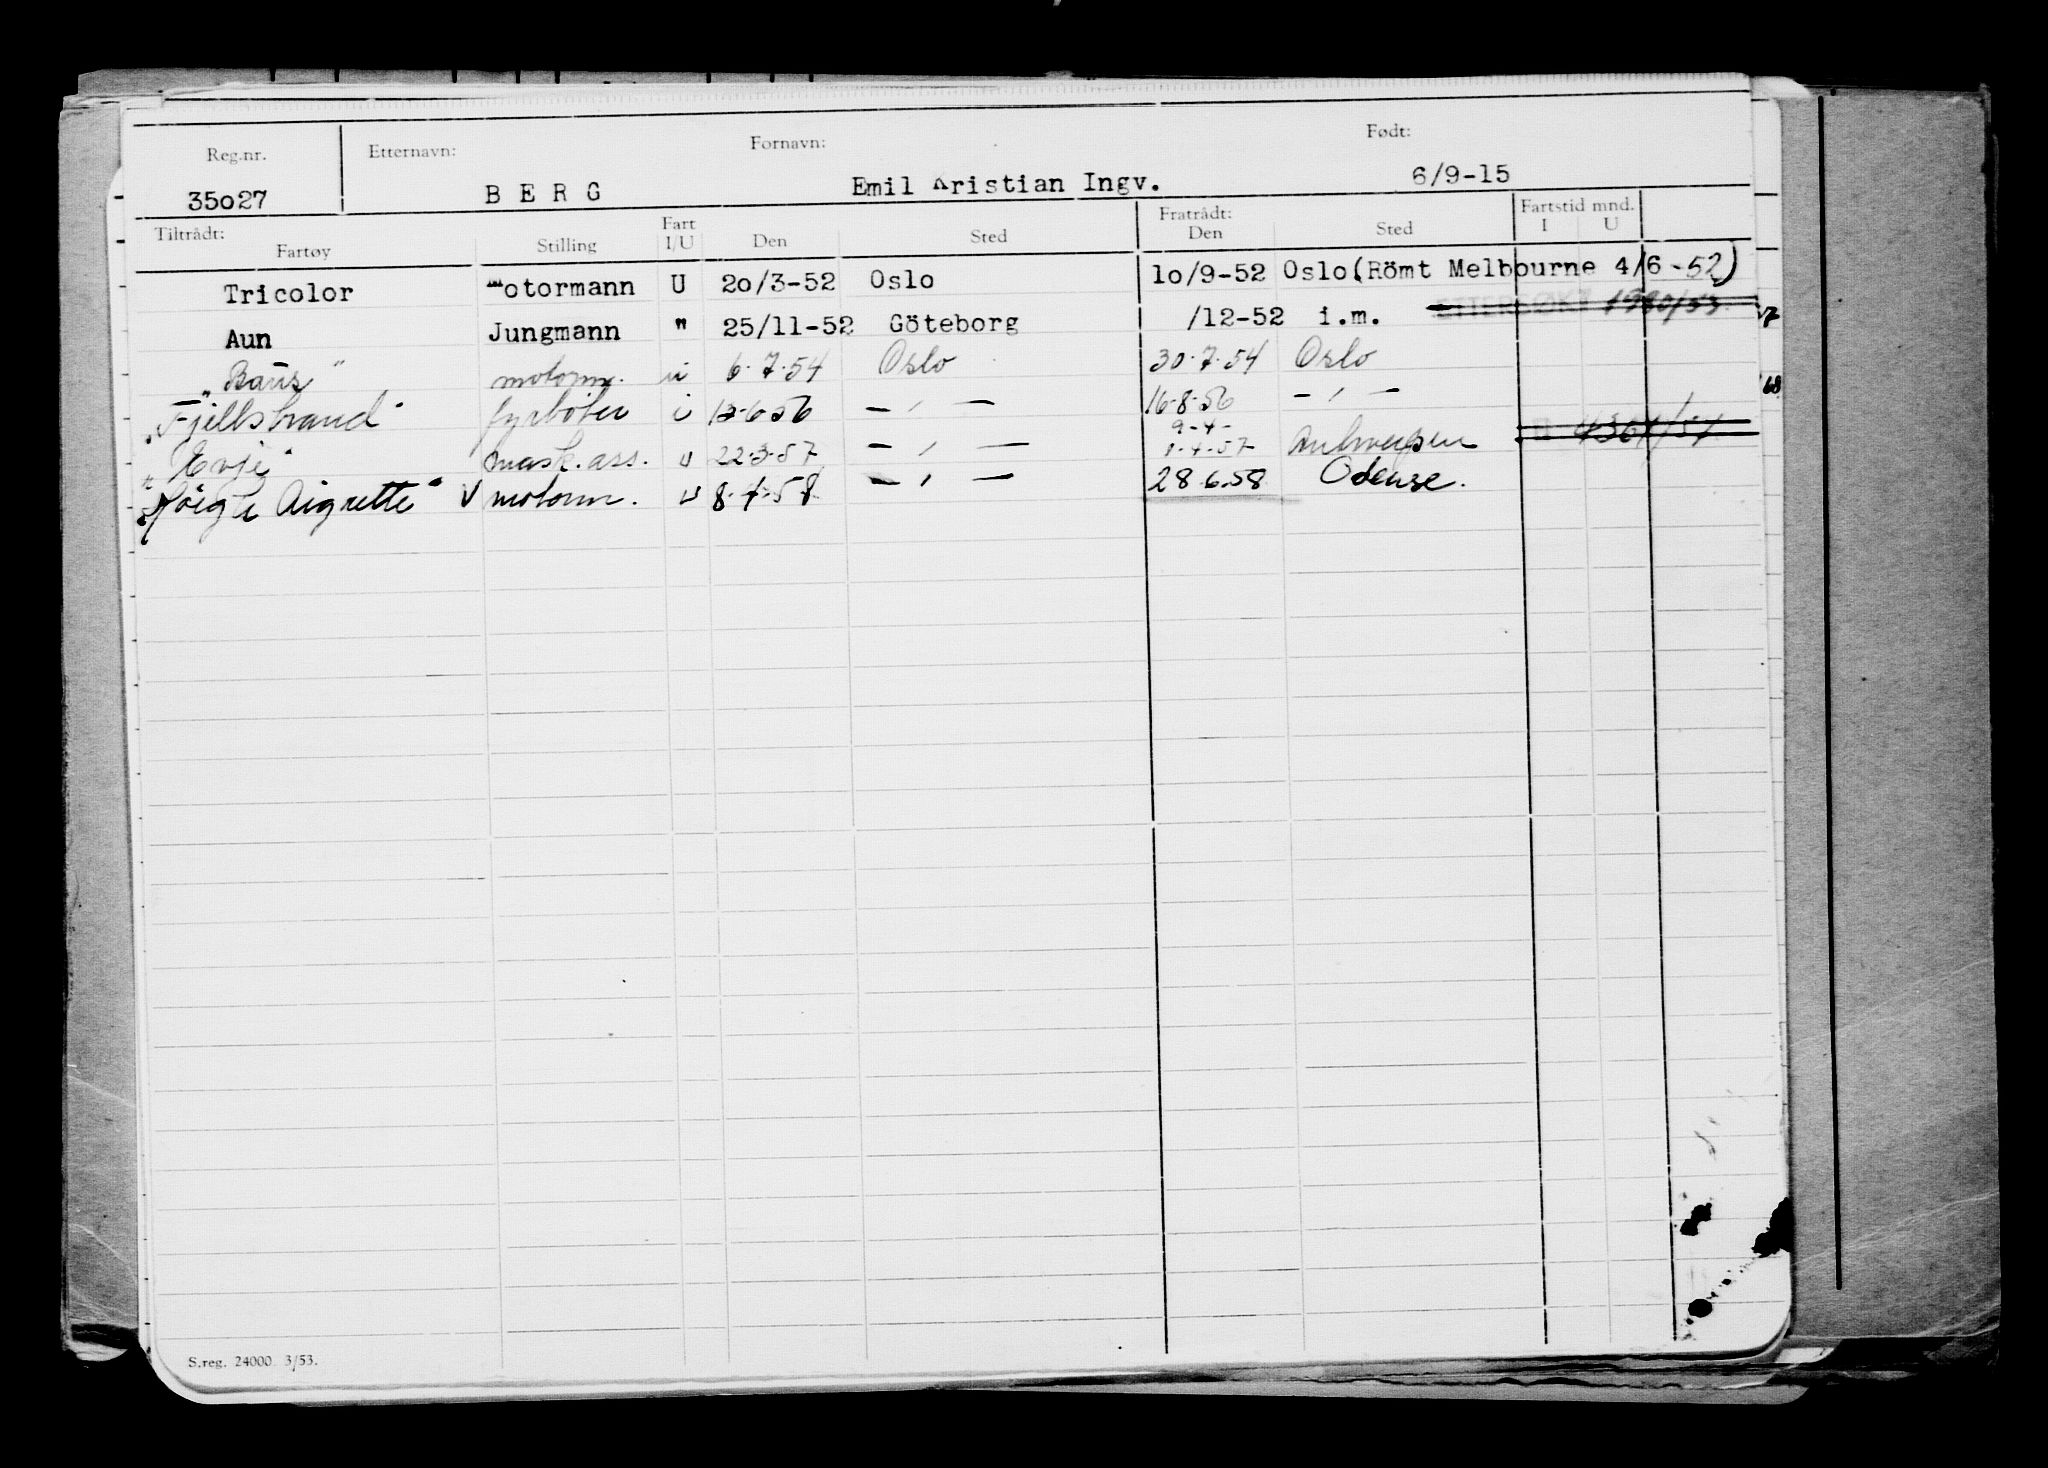 Reg.nr. Etternavn: Fornavn: Født:
35o27 B E R G Emil Kristian Ingv. 6/9-15
Tiltrådt: Fartøy Stilling Fart I/U Den Sted Fratrådt: Den Sted Fartstid mnd. I U
Tricolor motormann U 2o/3-52 Oslo 1o/9-52 Oslo (Römt Melbourne 4/6-52)
Aun Jungmann " 25/11-52 Göteborg /12-52 i.m. ETTERSØKT
motorm. u 6.7.54 Oslo 30.7.54 Oslo
"Fjellstrand" fyrböter i 6.56 — " — 16-8-56 — " —
9-4-
"Evje" mask.ass. u 22.3.57 — " — 1-4-57 Antwerpen
Aigrette" V motorm. u 8.4.58 — " — 28.6.58 Odense.
S.reg. 24000 3/53.